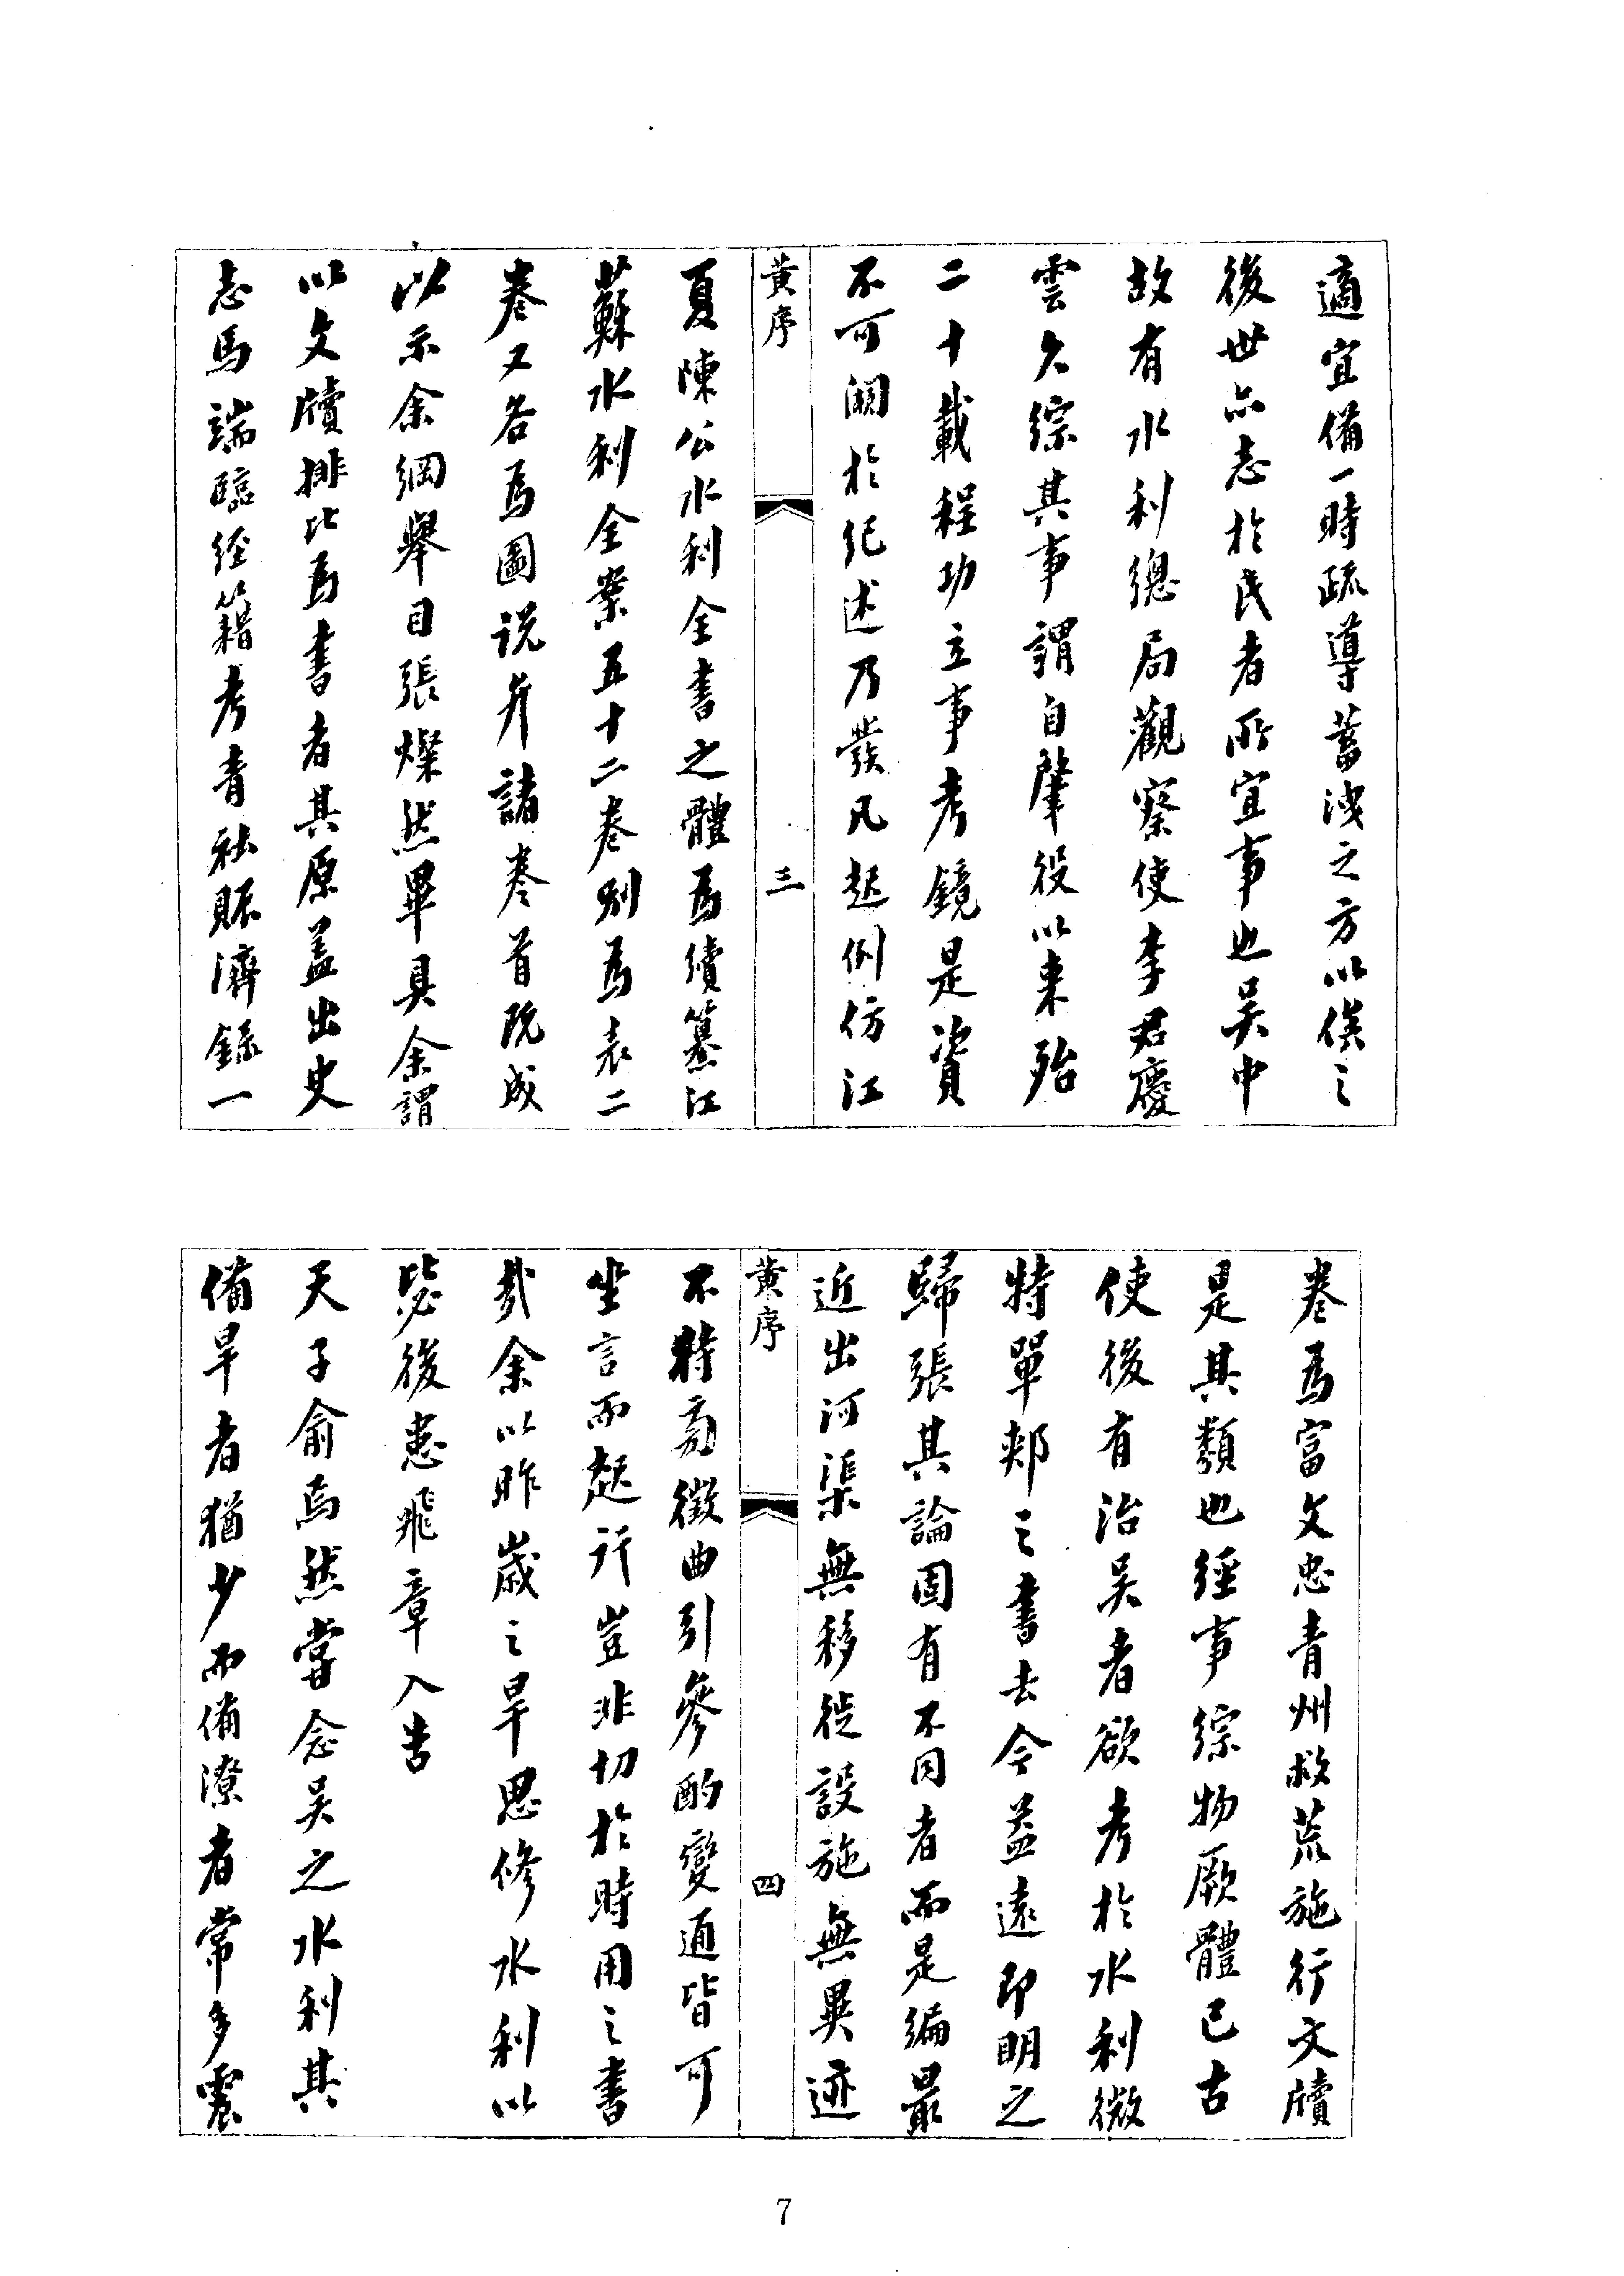 適宜備一時疏導蓄洩之方以俟之
後世亦志於民者所宜事也吳中
故有水利總局觀察使李君慶
雲久綜其事謂自肇役以來殆
二十載程功立事考鏡是資
不可闕於紀述乃發凡起例仿江
黄序
三
夏陳公水利全書之體爲續纂江
蘇水利全案五十二卷別爲表二
卷又各爲圖說弁諸卷首既成
以示余綱舉目張燦然畢具余謂
以文牘排比爲書者其原蓋出史
志馬端臨經籍考青社賑濟錄一
卷爲富文忠青州救荒施行文牘
是其類也經事綜物厥體已古
使後有治吳者欲考於水利微
特單郟之書去今益遠即明之
歸張其論固有不同者而是編最
近出河渠無移徙設施無異迹
黄序
四
不特旁徵曲引參酌變通皆可
坐言而起行豈非切於時用之書
哉余以昨歲之旱思修水利以
毖後患飛章入告
天子俞焉然嘗念吳之水利其
備旱者猶少而備潦者常多震
7